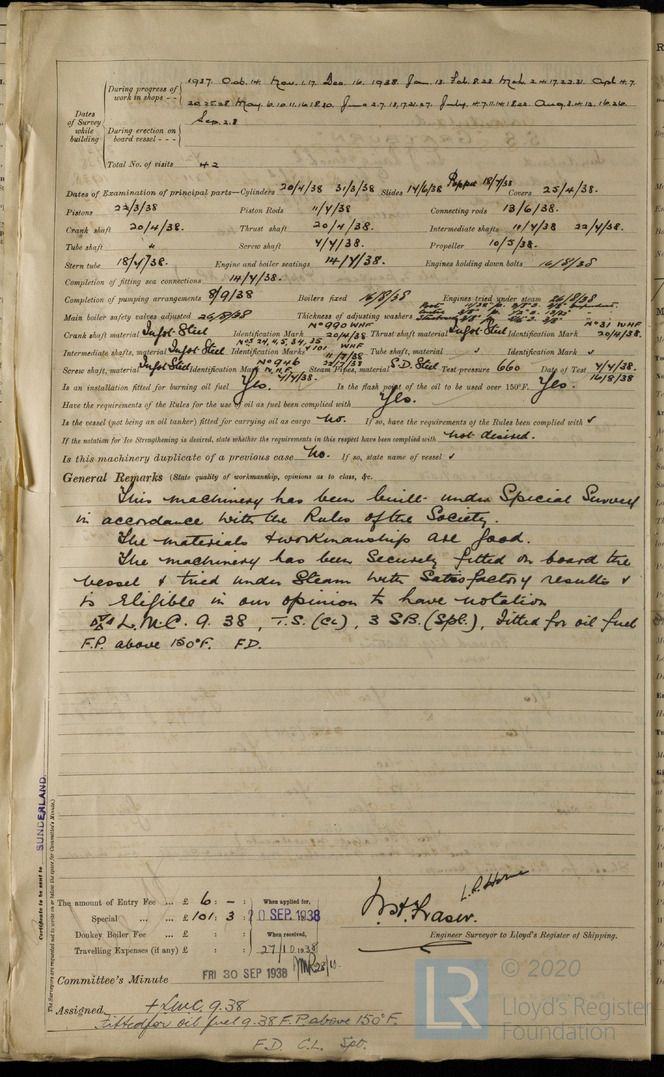 Dates of Survey while building
During progress of work in shops - - 1937. Oct. 14. Nov. 1.17. Dec. 16. 1938 Jan. 13. Feb. 8.23 Mch. 2.4.17.22.31. Apl. 4.7.
20.25.28 May. 6.10.11.16.18.30. June 2.7.13.17.21.27. July. 4.7.11.14.18.22. Aug. 3.4.12.16.26.
During erection on board vessel - - - Sep. 2.8
Total No. of visits 42
Dates of Examination of principal parts—Cylinders 20/4/38 31/3/38 Slides 14/6/38 Poppet 18/7/38 Covers 25/4/38.
Pistons 23/3/38 Piston Rods 11/4/38 Connecting rods 13/6/38.
Crank shaft 20/4/38. Thrust shaft 20/4/38. Intermediate shafts 11/4/38 22/4/38.
Tube shaft " Screw shaft 4/4/38. Propeller 10/5/38.
Stern tube 18/4/38. Engine and boiler seatings 14/7/38. Engines holding down bolts 16/8/38
Completion of fitting sea connections 14/7/38.
Completion of pumping arrangements 8/9/38 Boilers fixed 16/8/38 Engines tried under steam 26/8/38
Main boiler safety valves adjusted 26/8/38 Thickness of adjusting washers
Crank shaft material Ingot Steel Identification Mark Nº 990 WHF 20/4/38 Thrust shaft material Ingot Steel Identification Mark Nº 31 WHF 20/4/38.
Intermediate shafts, material Ingot Steel Identification Marks WHF Tube shaft, material ✓ Identification Mark ✓
Screw shaft, material Ingot Steel Identification Mark Nº 946 W.H.F. 4/4/38. Steam Pipes, material S.D. Steel Test pressure 660 Date of Test 4/7/38. 16/8/38
Is an installation fitted for burning oil fuel Yes. Is the flash point of the oil to be used over 150°F. Yes.
Have the requirements of the Rules for the use of oil as fuel been complied with Yes.
Is the vessel (not being an oil tanker) fitted for carrying oil as cargo No. If so, have the requirements of the Rules been complied with ✓
If the notation for Ice Strengthening is desired, state whether the requirements in this respect have been complied with Not desired.
Is this machinery duplicate of a previous case No. If so, state name of vessel ✓
General Remarks (State quality of workmanship, opinions as to class, &c.
This machinery has been built under Special Survey
in accordance with the Rules of the Society.
The materials & workmanship are good.
The machinery has been securely fitted on board the
vessel & tried under Steam with Satisfactory results &
is Eligible in our opinion to have notation
L.M.C. 9.38, T.S. (CL), 3 SB. (Spl.), Fitted for oil fuel
F.P. above 150°F. FD.
SUNDERLAND
Certificate to be sent to
The Surveyors are requested not to write on or below the space for Committee's Minute.
The amount of Entry Fee ... £ 6 : - : When applied for,
Special ... ... £ 101 : 3 : 20 SEP. 1938
Donkey Boiler Fee ... £ : : When received,
Travelling Expenses (if any) £ : : 27/10.1938
L.P. Horne
W.H. Fraser.
Engineer Surveyor to Lloyd's Register of Shipping.
Committee's Minute FRI 30 SEP 1938
Assigned + LMC. 9.38
Fitted for oil fuel 9.38 F.P. above 150°F.
F.D. C.L. Spt.
LR
© 2020
Lloyd's Register
Foundation